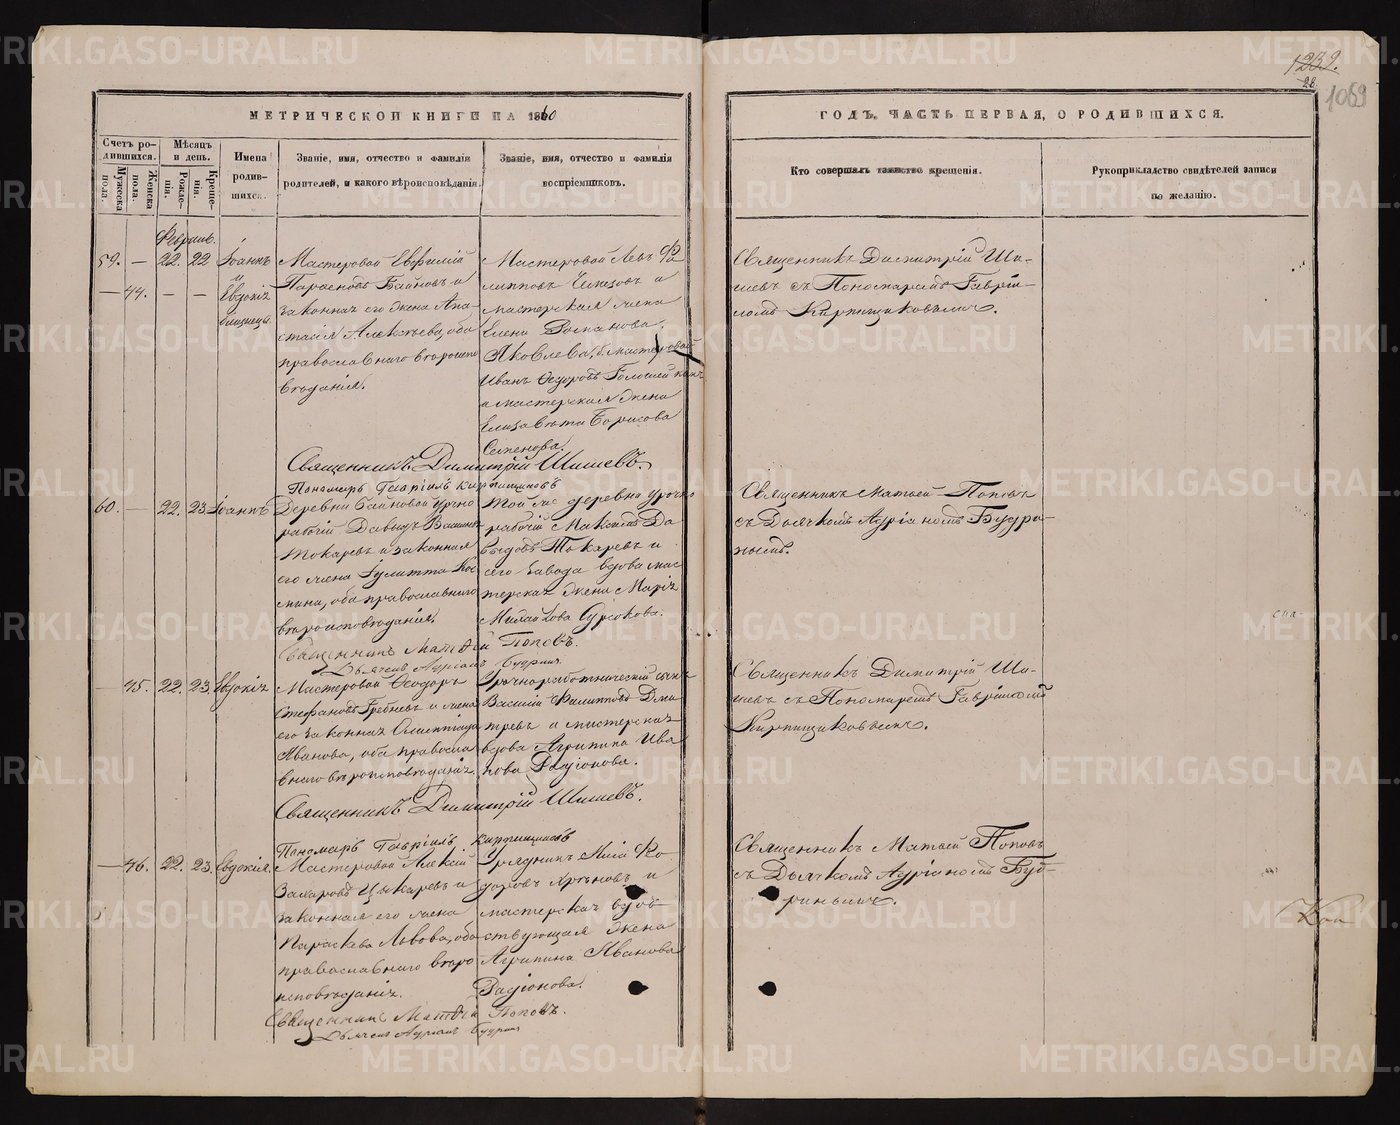 1239.
28
1069
МЕТРИЧЕСКОЙ КНИГИ НА 1860
ГОДЪ, ЧАСТЬ ПЕРВАЯ, О РОДИВШИХСЯ.
Счетъ ро-
дившихся.
Мужеска
пола.
Женска
пола.
Мѣсяцъ
и день.
Рожде-
нія.
Креще-
нія.
Имена
родив-
шихся.
Званіе, имя, отчество и фамилія
родителей, и какого вѣроисповѣданія.
Званіе, имя, отчество и фамилія
воспріемниковъ.
Кто совершалъ таинство крещенія.
Рукоприкладство свидѣтелей записи
по желанію.
Февраль.
59. — 22. 22 Іоаннъ
и
— 44. — — Евдокія
близнецы.
Мастеровой Евфимій
Парѳеновъ Баиновъ и
законная его жена Ана-
стасія Алексѣева, оба
православнаго вѣроиспо-
вѣданія.
Мастеровой Левъ Фи-
липповъ и
мастерская жена
Елена Романова
Яковлева, б. мастеровой
Иванъ Ѳедоровъ
а мастерская жена
Елизавета Борисова
Семенова.
Священникъ Димитрій Ши-
шевъ съ Пономаремъ Гаврі-
ломъ Кирпищиковымъ.
Священникъ Димитрій Шишевъ.
Пономарь Гавріилъ Кирпищиковъ
60. — 22. 23. Іоаннъ
Деревни Баиновой урочно
рабочій Давыдъ Васильевъ
Токаревъ и законная
его жена Іулитта Кос-
мина, оба православнаго
вѣроисповѣданія.
Той же деревни урочно
рабочій Максимъ Да-
выдовъ Токаревъ и
сего завода вдова мас-
терская жена Марія
Михайлова Сурсякова.
Священникъ Матвей Поповъ
съ Дьячкомъ Адріаномъ Будри-
нымъ.
Священникъ Матѳій Поповъ.
Дьячекъ Адріанъ Будринъ
— 45. 22. 23. Евдокія
Мастеровой Ѳеодоръ
Стефановъ Гребневъ и жена
его законная Олимпіада
Иванова, оба православ-
наго вѣроисповѣданія.
Урочноработническій сынъ
Василій Филипповъ Дми-
тревъ и мастерская
вдова Агрипина Ива-
нова Радіонова.
Священникъ Димитрій Ши-
шевъ съ Пономаремъ Гавріиломъ
Кирпищиковымъ.
Священникъ Димитрій Шишевъ.
Пономарь Гавріилъ Кирпищиковъ
— 46. 22. 23. Евдокія.
Мастеровой Алексій
Захаровъ Цыкаревъ и
законная его жена
Параскева Львова, оба
православнаго вѣро-
исповѣданія.
Урядникъ Илія Ѳо-
доровъ и
мастерская вдов-
ствующая жена
Агрипина Иванова
Радіонова.
Священникъ Матвей Поповъ
съ Дьячкомъ Адріаномъ Буд-
ринымъ.
Священникъ Матѳій Поповъ.
Дьячекъ Адріанъ Будринъ
METRIKI.GASO-URAL.RU